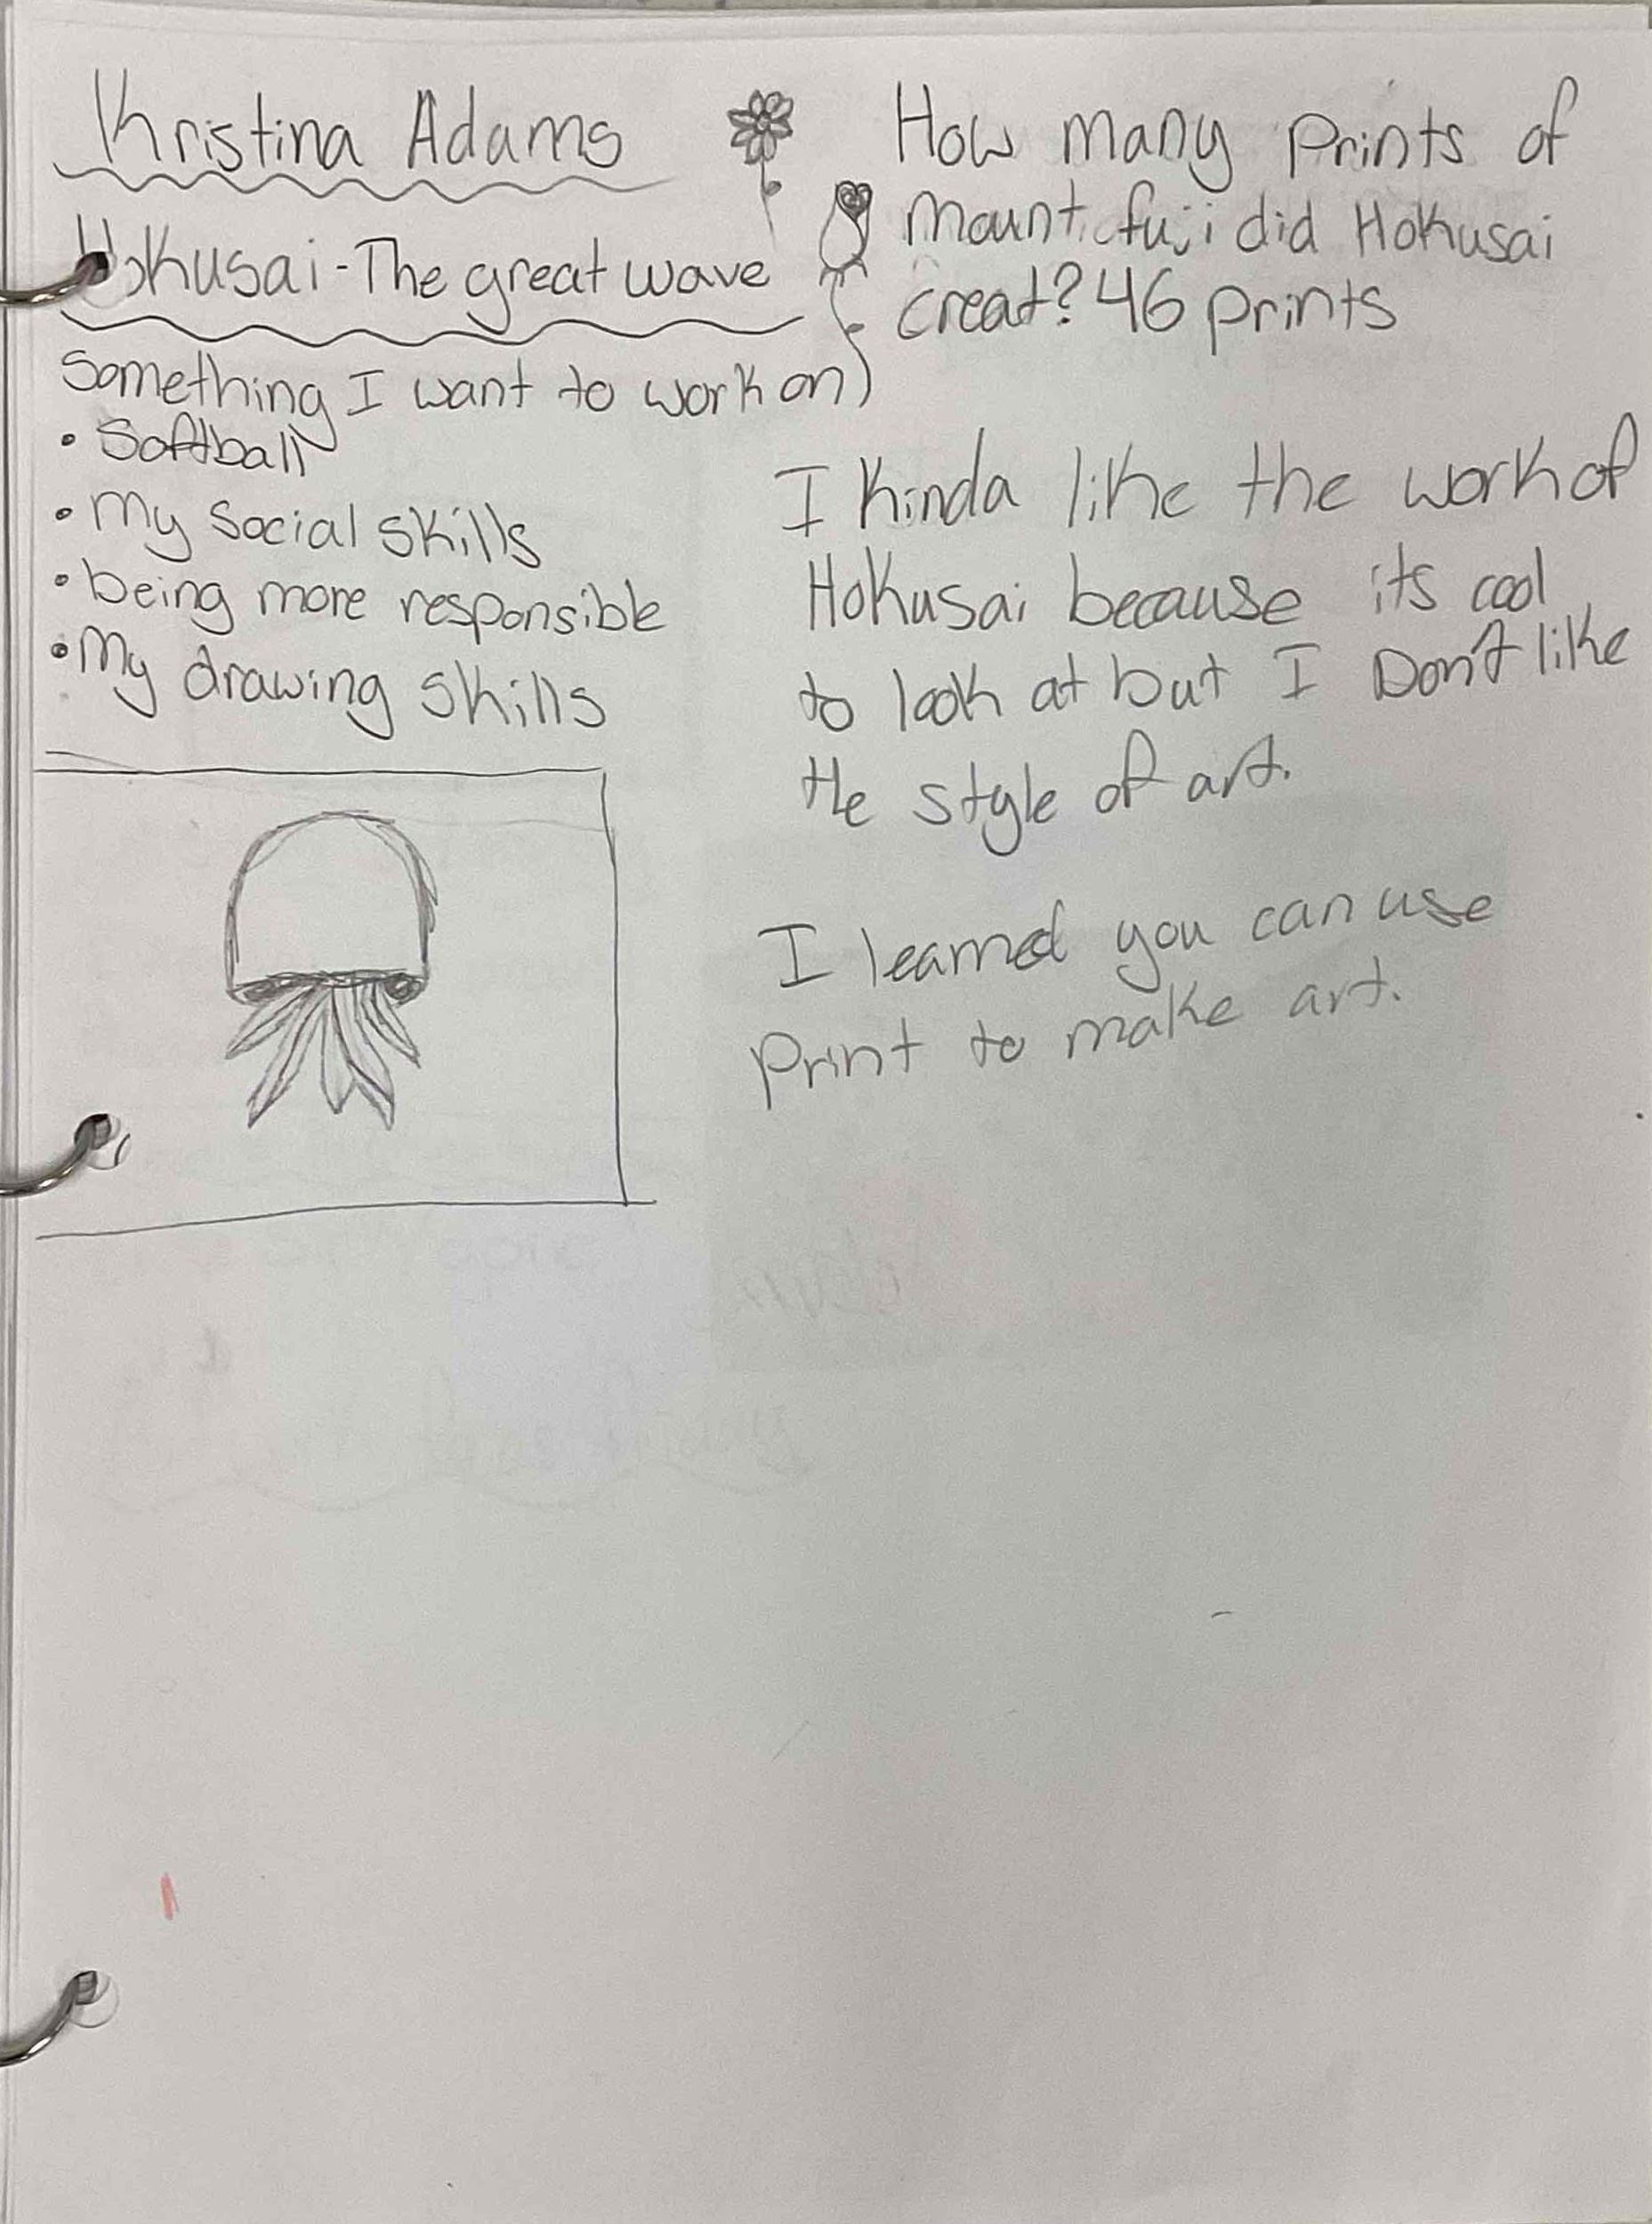 Kristina Adams
Hokusai - The great wave
Something I want to work on)
• Softball
• My social skills
• being more responsible
• My drawing skills
How many prints of
mount fuji did Hokusai
creat? 46 prints
I kinda like the work of
Hokusai because its cool
to look at but I Don't like
the style of art.
I learned you can use
print to make art.